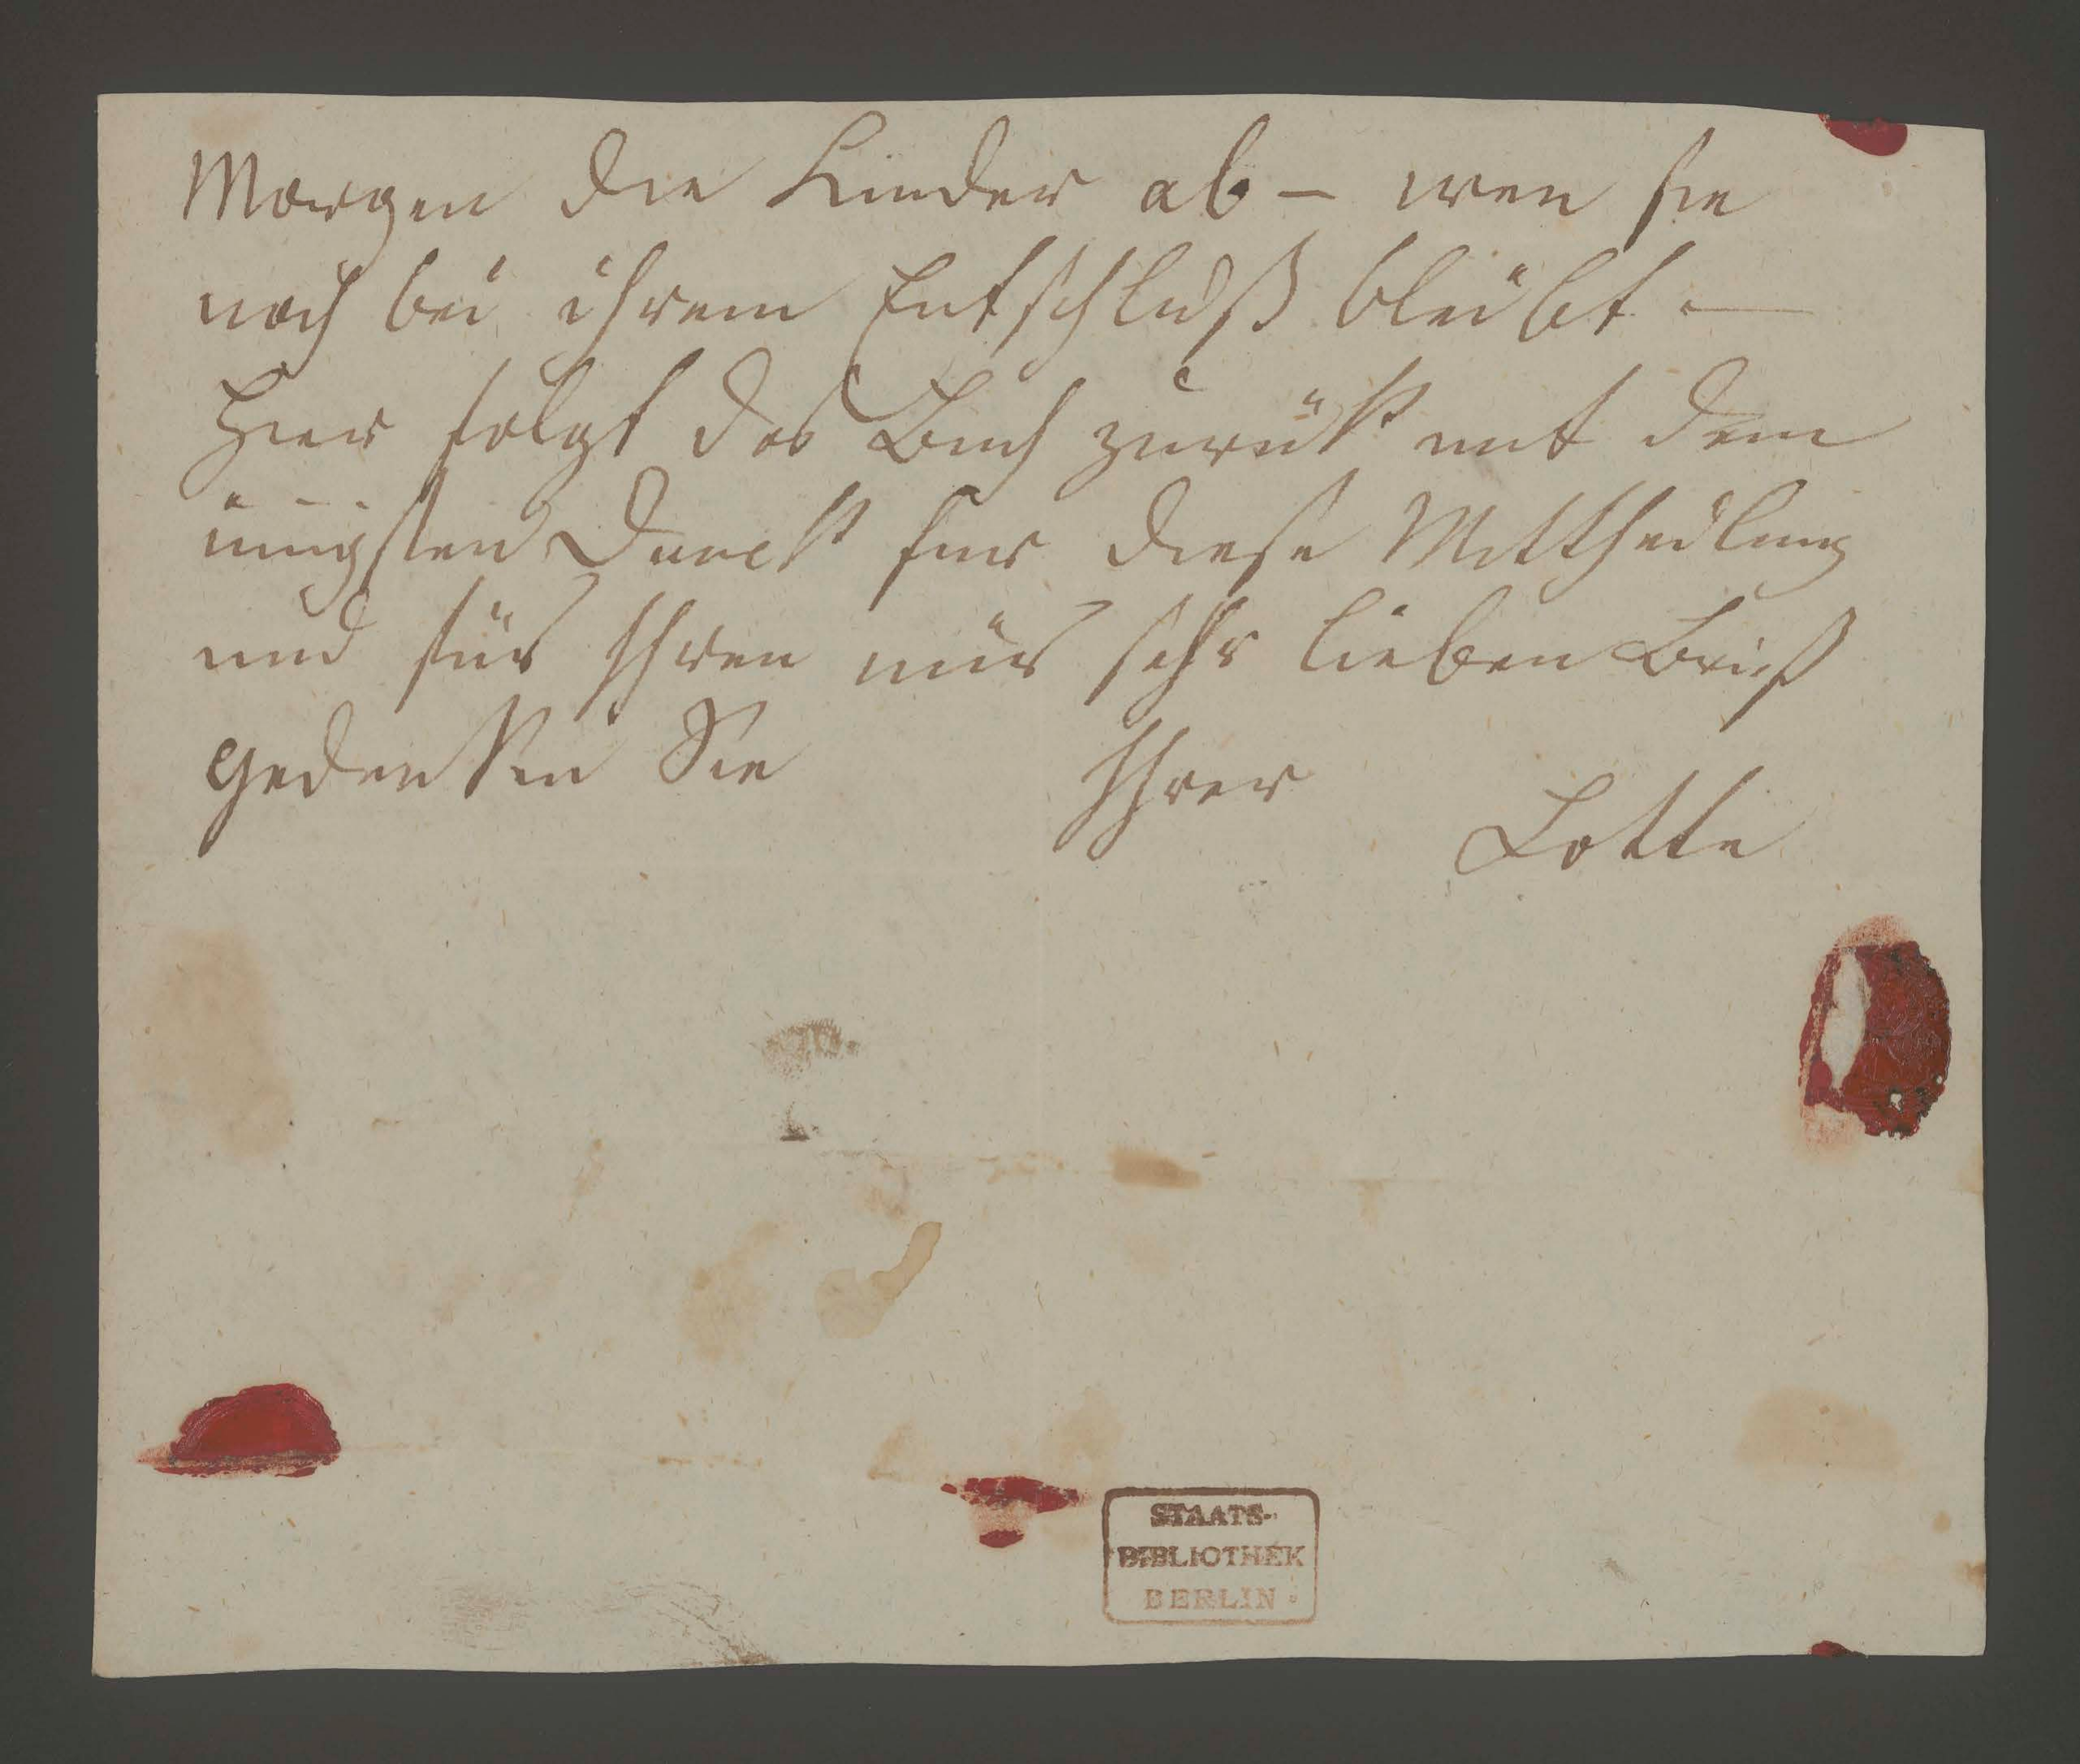 Morgen die Kinder ab – wen sie
noch bei ihrem Entschluß bleibt –
Hier folgt das Buch zurük mit dem
innigsten Danck für diese Mittheilung
und für Ihren mir sehr lieben Brief
gedenken Sie Ihrer
Lotte
STAATS-
BIBLIOTHEK
BERLIN